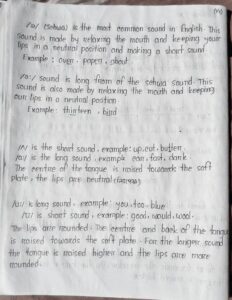 /ə/ (schwa) is the most common sound in English. This
sound is made by relaxing the mouth and keeping your
lips in a neutral position and making a short sound.
Example : over, paper, about
/ɜ:/ sound is long from of the schwa sound. This
sound is also made by relaxing the mouth and keeping
our lips in a neutral position
Example : thirteen, bird
/ʌ/ is the short sound, example: up, eat, butter,
is the long sound, example: car, fast, dark
The centre of the tongue is raised towards the soft
plate, the lips are neutral
/u:/ is long sound, example: you, too, blue
/ʊ/ is short sound, example: good, would, wool.
The lips are rounded. The centre and back of the tongue
is raised towards the soft plate. For the longer sound
the tongue is raised higher and the lips are more
rounded.